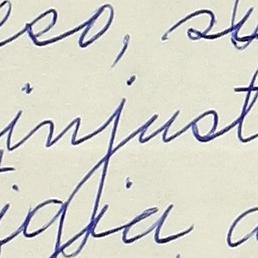 eso, su
injust
igia a